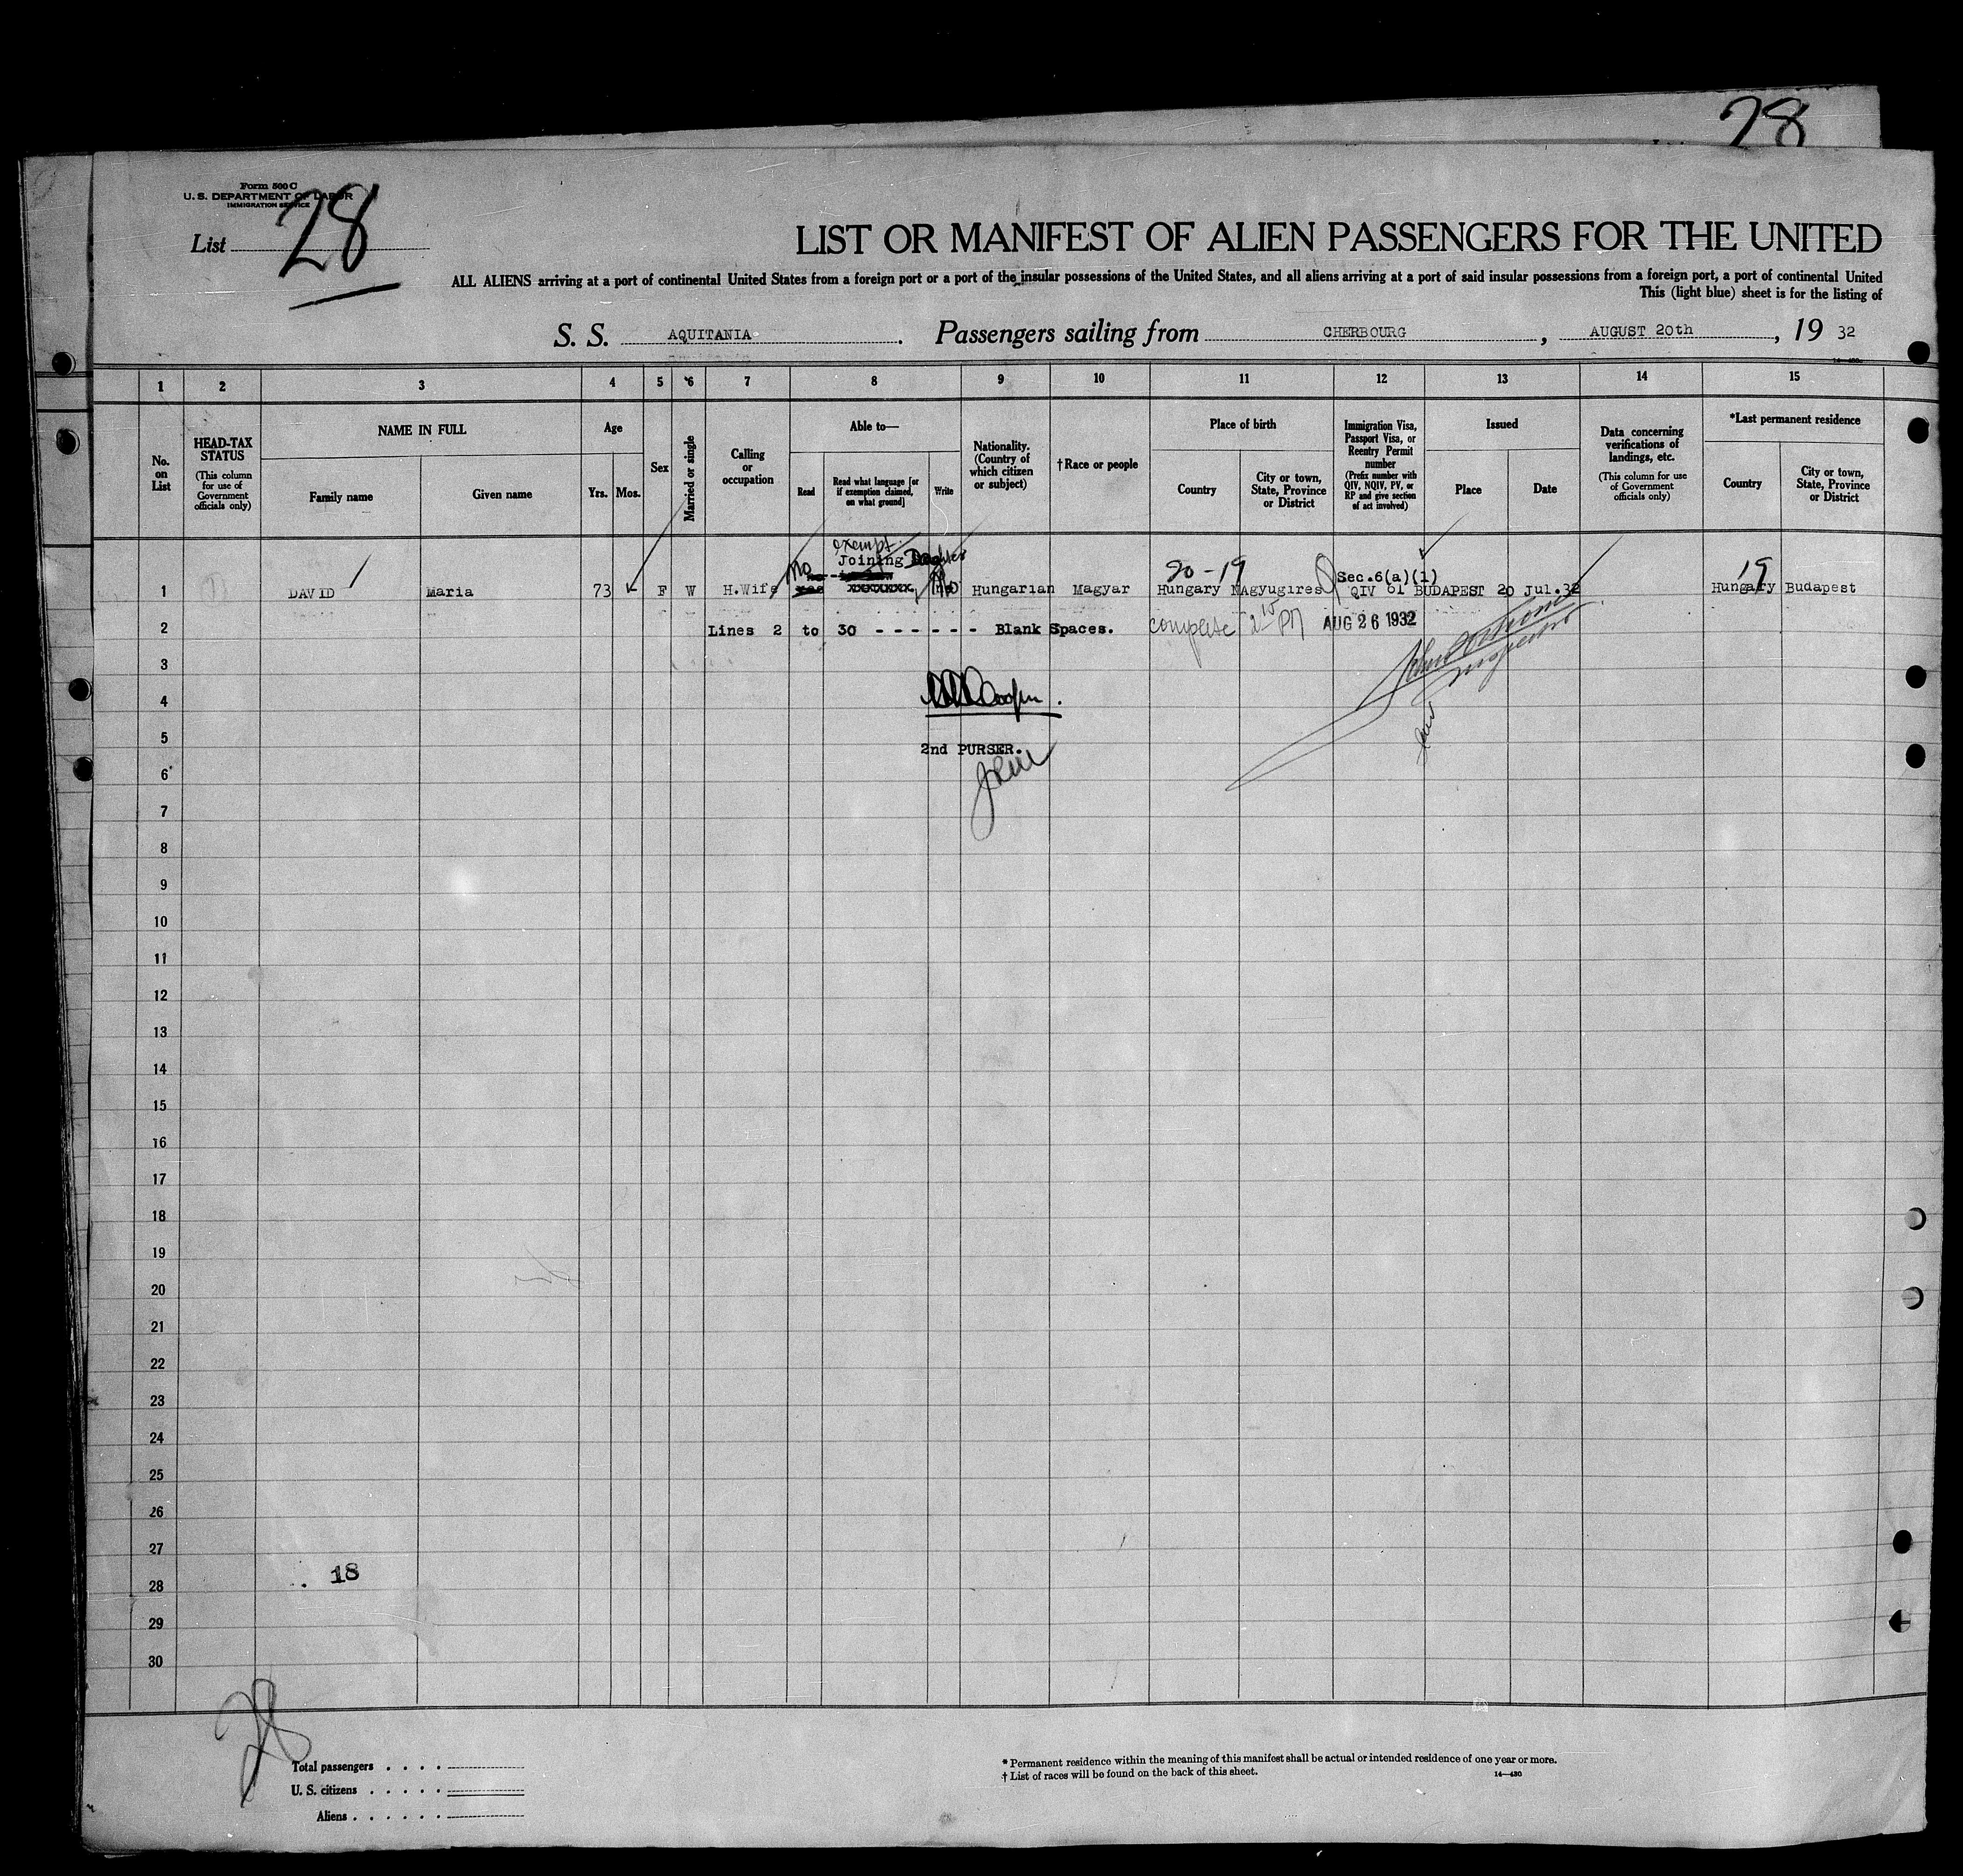 28
Form 500 C
U. S. DEPARTMENT OF LABOR
IMMIGRATION SERVICE
List 28
LIST OR MANIFEST OF ALIEN PASSENGERS FOR THE UNITED
ALL ALIENS arriving at a port of continental United States from a foreign port or a port of the insular possessions of the United States, and all aliens arriving at a port of said insular possessions from a foreign port, a port of continental United
This (light blue) sheet is for the listing of
S. S. AQUITANIA. Passengers sailing from CHERBOURG, AUGUST 20th, 19 32
1 2 3 4 5 6 7 8 9 10 11 12 13 14 15
No. on List
HEAD-TAX STATUS
(This column for use of Government officials only)
NAME IN FULL
Family name Given name
Age
Yrs. Mos.
Sex
Married or single
Calling or occupation
Able to—
Read
Read what language [or if exemption claimed, on what ground]
Write
Nationality. (Country of which citizen or subject)
†Race or people
Place of birth
Country
City or town, State, Province or District
Immigration Visa, Passport Visa, or Reentry Permit number
(Prefix number with QIV, NQIV, PV, or RP and give section of act involved)
Issued
Place Date
Data concerning verifications of landings, etc.
(This column for use of Government officials only)
*Last permanent residence
Country
City or town, State, Province or District
exempt.
Joining Daughter
No
20-19
Sec.6(a)(1)
19
1 DAVID Maria 73 F W H.Wife xxxxxxxx, No Hungarian Magyar Hungary Nagyugires QIV 61 BUDAPEST 20 Jul.32 Hungary Budapest
2 Lines 2 to 30 - - - - - - Blank Spaces. complete AUG 26 1932
3
Inspector
4
5
2nd PURSER.
6
7
8
9
10
11
12
13
14
15
16
17
18
19
20
21
22
23
24
25
26
27
18
28
29
30
28
Total passengers . . . .
U. S. citizens . . . . .
Aliens . . . . . .
* Permanent residence within the meaning of this manifest shall be actual or intended residence of one year or more.
† List of races will be found on the back of this sheet.
14—430